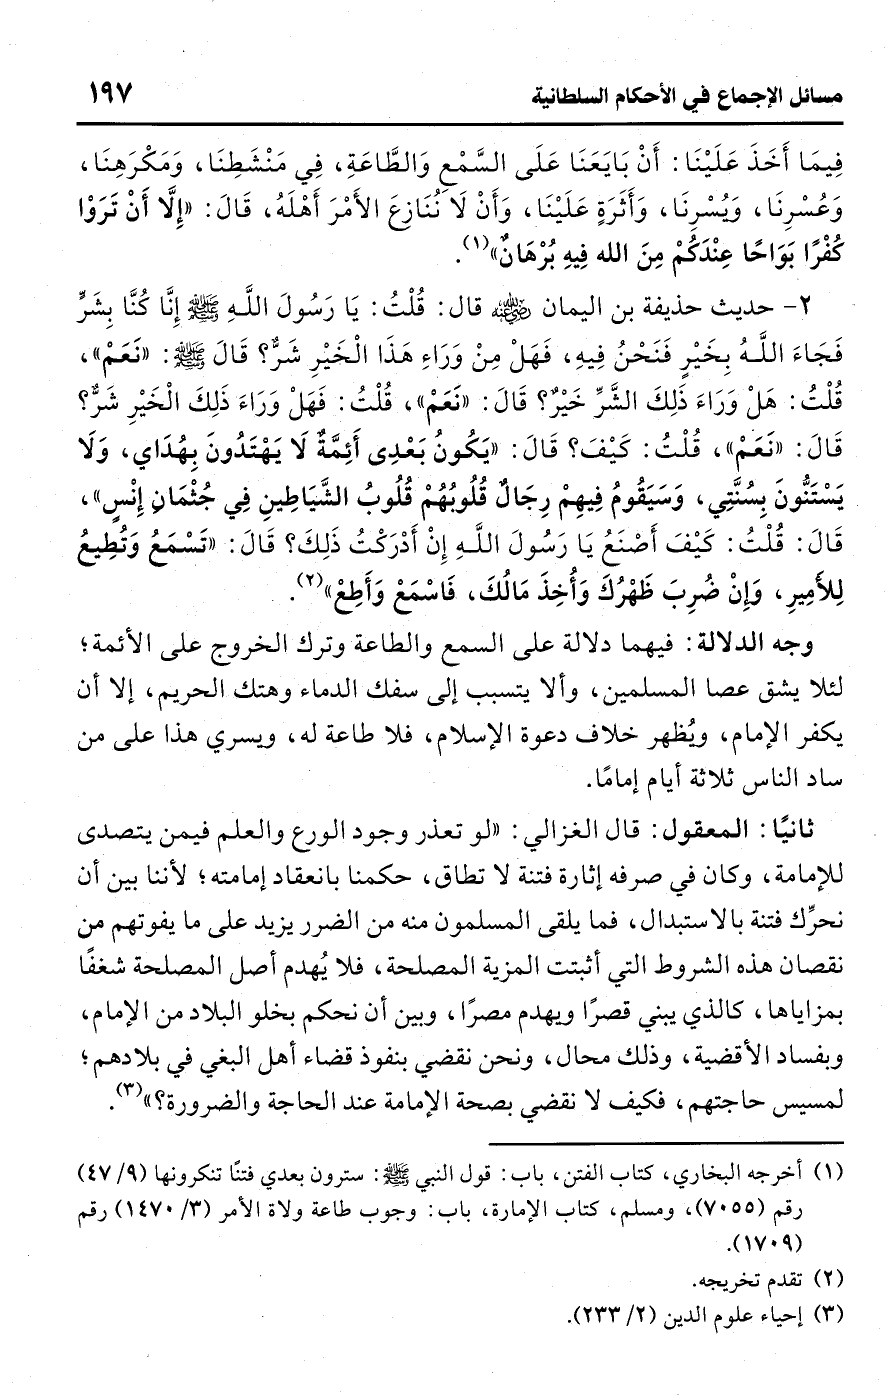 مسائل الإجماع في الأحكام السلطانية ١٩٧
فِيمَا أَخَذَ عَلَيْنَا: أَنْ بَايَعَنَا عَلَى السَّمْعِ وَالطَّاعَةِ، فِي مَنْشَطِنَا، وَمَكْرَهِنَا،
وَعُسْرِنَا، وَيُسْرِنَا، وَأَثَرَةٍ عَلَيْنَا، وَأَنْ لَا نُنَازِعَ الأَمْرَ أَهْلَهُ، قَالَ: «إِلَّا أَنْ تَرَوْا
كُفْرًا بَوَاحًا عِنْدَكُمْ مِنَ الله فِيهِ بُرْهَانٌ»(١).
٢- حديث حذيفة بن اليمان رضي الله عنه قال: قُلْتُ: يَا رَسُولَ اللَّهِ ﷺ إِنَّا كُنَّا بِشَرٍّ
فَجَاءَ اللَّهُ بِخَيْرٍ فَنَحْنُ فِيهِ، فَهَلْ مِنْ وَرَاءِ هَذَا الْخَيْرِ شَرٌّ؟ قَالَ ﷺ: «نَعَمْ»،
قُلْتُ: هَلْ وَرَاءَ ذَلِكَ الشَّرِّ خَيْرٌ؟ قَالَ: «نَعَمْ»، قُلْتُ: فَهَلْ وَرَاءَ ذَلِكَ الْخَيْرِ شَرٌّ؟
قَالَ: «نَعَمْ»، قُلْتُ: كَيْفَ؟ قَالَ: «يَكُونُ بَعْدِى أَئِمَّةٌ لَا يَهْتَدُونَ بِهُدَاي، وَلَا
يَسْتَنُّونَ بِسُنَّتِي، وَسَيَقُومُ فِيهِمْ رِجَالٌ قُلُوبُهُمْ قُلُوبُ الشَّيَاطِينِ فِي جُثْمَانِ إِنْسٍ»،
قَالَ: قُلْتُ: كَيْفَ أَصْنَعُ يَا رَسُولَ اللَّهِ إِنْ أَدْرَكْتُ ذَلِكَ؟ قَالَ: «تَسْمَعُ وَتُطِيعُ
لِلأَمِيرِ، وَإِنْ ضُرِبَ ظَهْرُكَ وَأُخِذَ مَالُكَ، فَاسْمَعْ وَأَطِعْ»(٢).
وجه الدلالة: فيهما دلالة على السمع والطاعة وترك الخروج على الأئمة؛
لئلا يشق عصا المسلمين، وألا يتسبب إلى سفك الدماء وهتك الحريم، إلا أن
يكفر الإمام، ويُظهر خلاف دعوة الإسلام، فلا طاعة له، ويسري هذا على من
ساد الناس ثلاثة أيام إمامًا.
ثانيًا: المعقول: قال الغزالي: «لو تعذر وجود الورع والعلم فيمن يتصدى
للإمامة، وكان في صرفه إثارة فتنة لا تطاق، حكمنا بانعقاد إمامته؛ لأننا بين أن
نحرِّك فتنة بالاستبدال، فما يلقى المسلمون منه من الضرر يزيد على ما يفوتهم من
نقصان هذه الشروط التي أثبتت المزية المصلحة، فلا يُهدم أصل المصلحة شغفًا
بمزاياها، كالذي يبني قصرًا ويهدم مصرًا، وبين أن نحكم بخلو البلاد من الإمام،
وبفساد الأقضية، وذلك محال، ونحن نقضي بنفوذ قضاء أهل البغي في بلادهم؛
لمسيس حاجتهم، فكيف لا نقضي بصحة الإمامة عند الحاجة والضرورة؟»(٣).
(١) أخرجه البخاري، كتاب الفتن، باب: قول النبي ﷺ: سترون بعدي فتنًا تنكرونها (٤٧/٩)
رقم (٧٠٥٥)، ومسلم، كتاب الإمارة، باب: وجوب طاعة ولاة الأمر (١٤٧٠/٣) رقم
(١٧٠٩).
(٢) تقدم تخريجه.
(٣) إحياء علوم الدين (٢٣٣/٢).